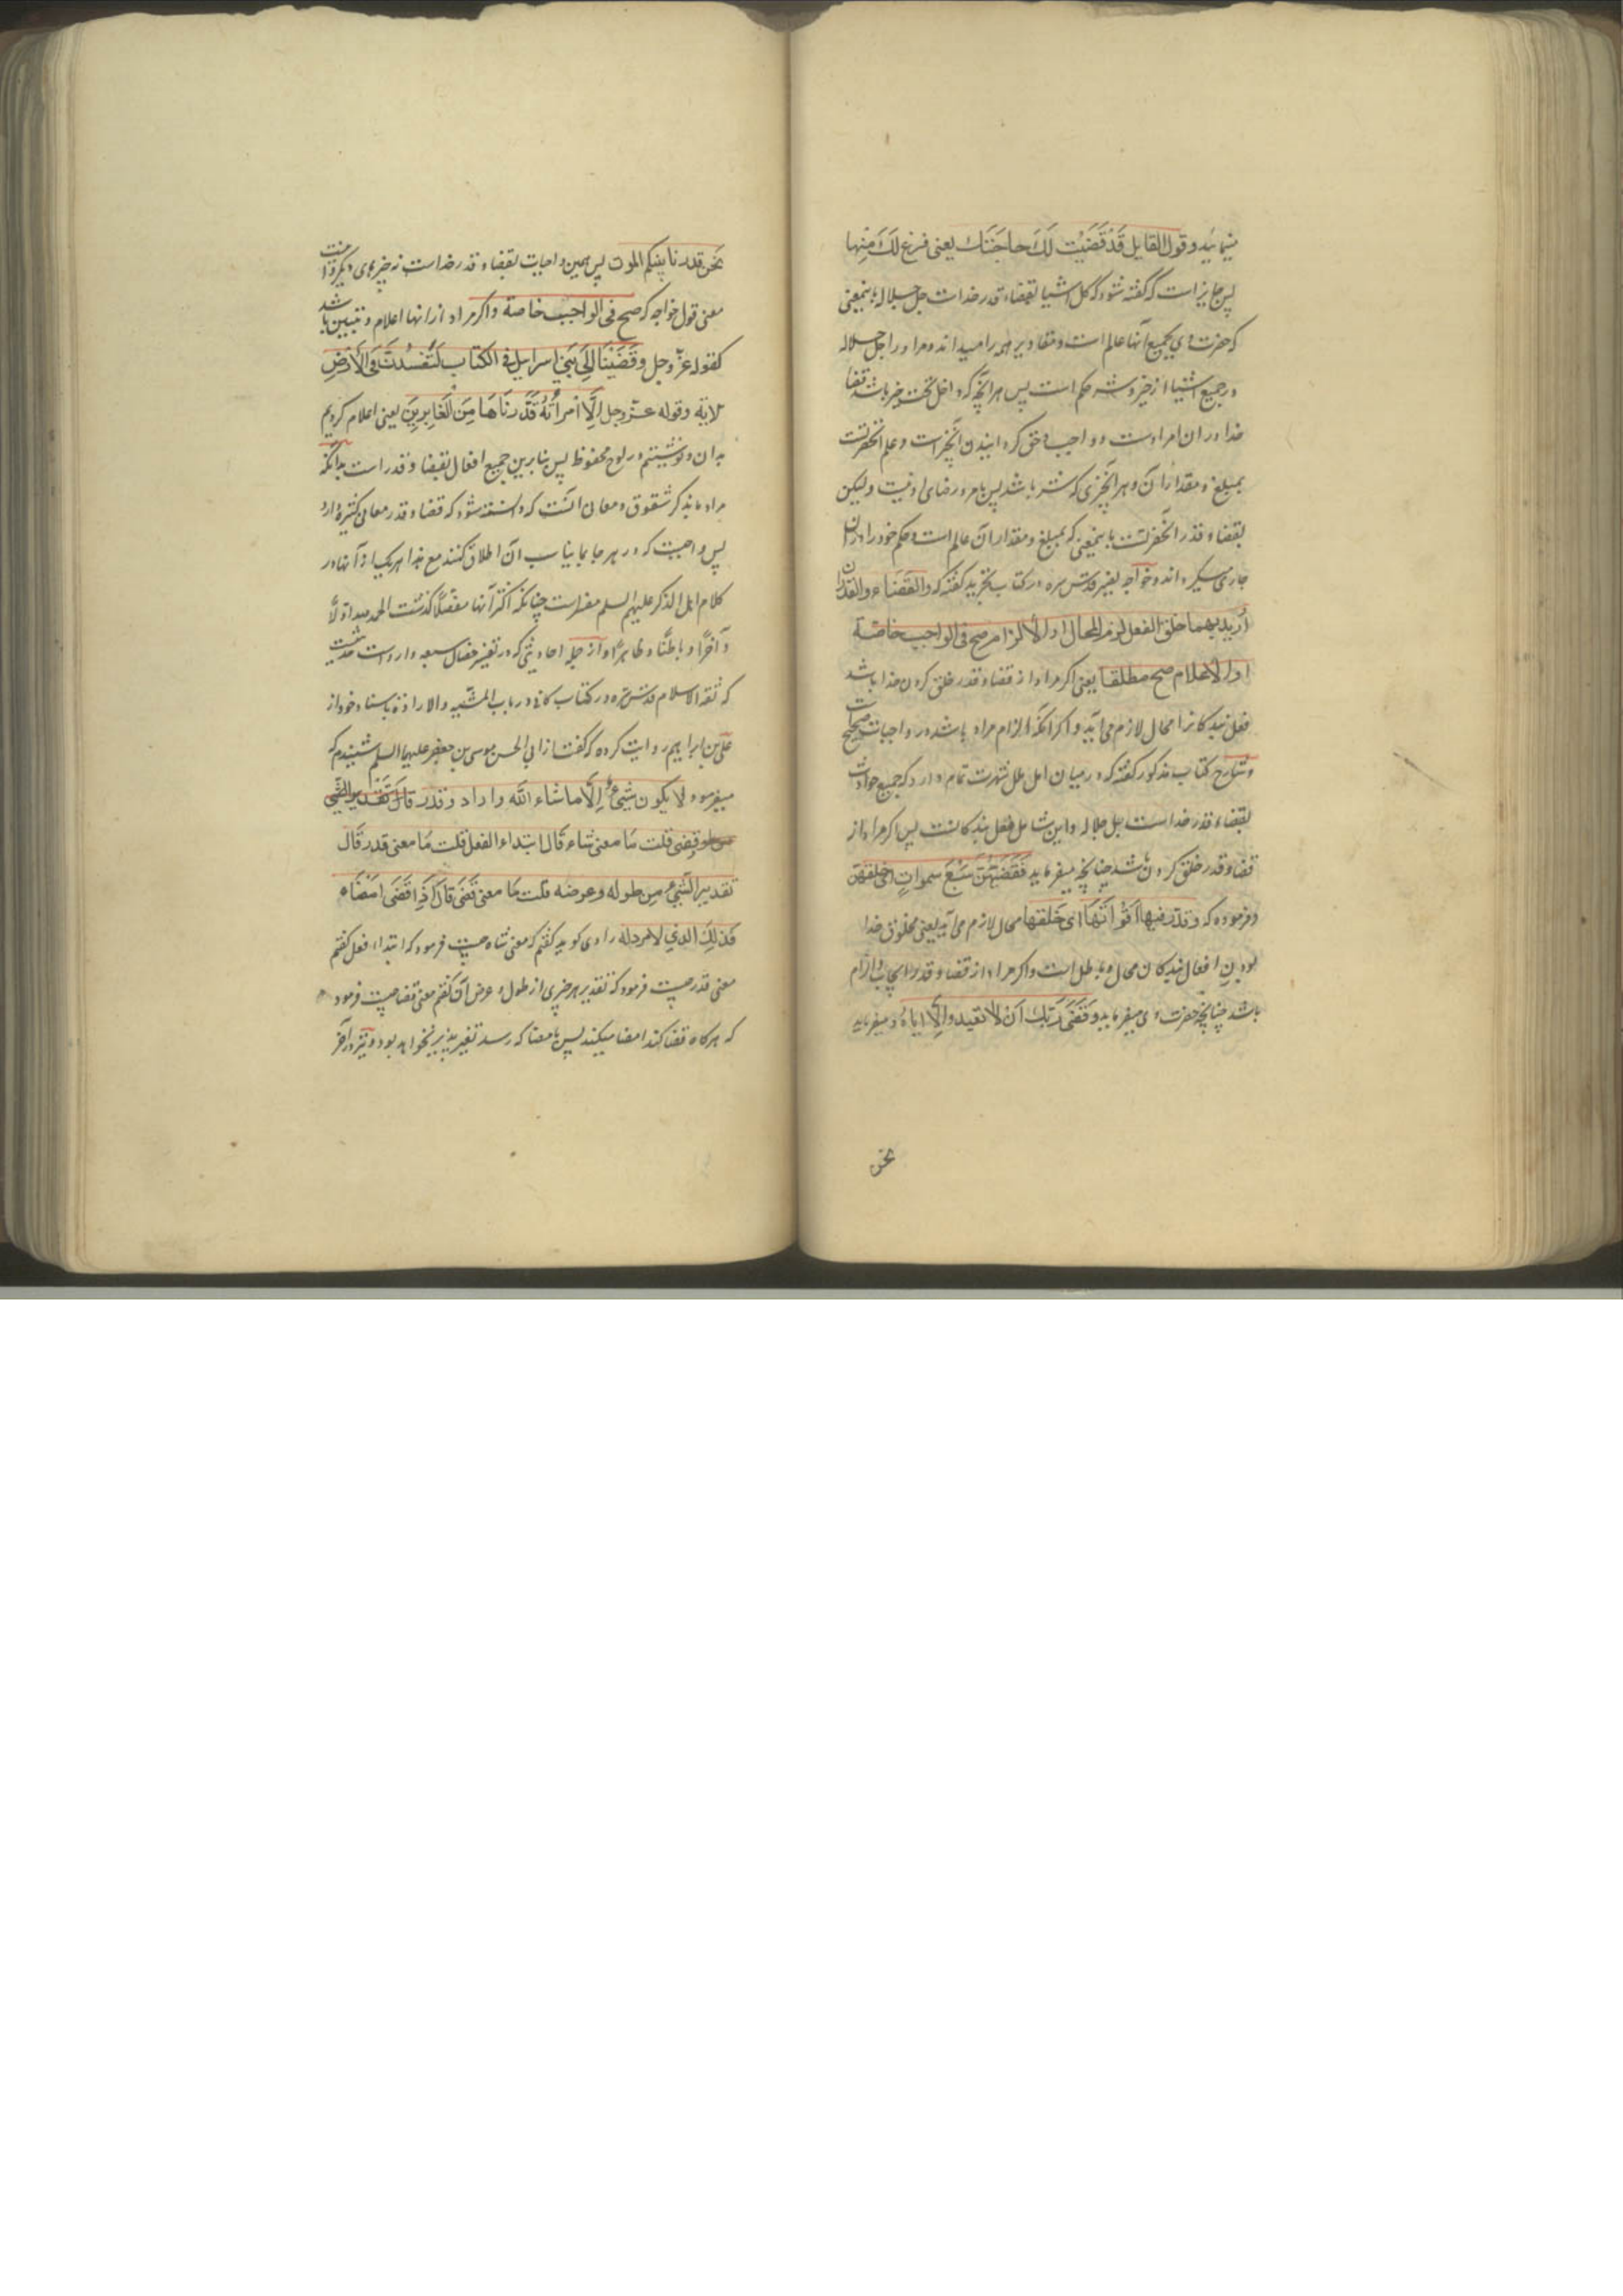 مینماید و قول القایل قَدْ قَضَیْتُ لَكَ حاجَتَكَ یعنی فرغ لَكَ مِنها
پس جایز است که گفته شود که کل اشیا بقضاء و قدر خداست جل جلاله باینمعنی
که حضرت وی بجمیع آنها عالم است و مقادیر همه را میداند و مر او را جل جلاله
در جمیع اشیا از خیر و شر حکم است پس هر آنچه که داخل تحت خیر باشد قضا
خدا در ان امر اوست و واجب و حق گردانیدن آنچیز است و علم آنحضرتست
بمبلغ و مقدار آن و هر آنچیزی که شر باشد پس بامر و رضای او نیست و لیکن
بقضاء و قدر آنحضرتست باینمعنی که بمبلغ و مقدار آن عالم است و حکم خود را در آن
جاری میگرداند و خواجه نصیر قدس سره در کتاب تجرید گفته که والقضاء و القدر ان
اُرید بهما خلق الفعل لزم المحال او الالزام صح فی الواجب خاصّة
او الاعلام صح مطلقا یعنی اگر مراد از قضا و قدر خلق کردن خدا باشد
فعل بندگانرا محال لازم می آید و اگر آنکه الزام مراد باشد در واجبات صحیح است
و شارح کتاب مذکور گفته که در میان اهل ملل شهرت تمام دارد که جمیع حوادث
بقضاء و قدر خداست جل جلاله و این شامل فعل بندگانست پس اگر مراد از
قضا و قدر خلق کردن باشد چنانچه میفرماید فَقَضَیهُنَّ سَبْعَ سمواتٍ ای خلقهن
و فرموده که و قدّر فیها اَقْواتَهَا ای خَلَقها محال لازم می آید یعنی مخلوق خدا
بودن افعال بندگان محال و باطل است و اگر مراد از قضا و قدر ایجاب و الزام
باشد چنانچه حضرت وی میفرماید وَقَضَی رَبُّكَ اَنْ لا تعبدوا اِلّا ایاهُ و میفرماید
نحن
نَحن قدرنا بینکم الموت پس همین واجبات بقضاء و قدر خداست نه چیزهای دیگر و اینست
معنی قول خواجه که صح فی الواجب خاصة و اگر مراد از انها اعلام و تبیین باشد
کقوله عزّ و جل وقَضَیْنَا اِلَی بَنِی اسراییل فی الکتاب لَتُفْسِدُنَّ فی الاَرْضِ
الایة و قوله عزّ و جل اِلَّا امْرَأَتَهُ قَدَّرنَاهَا مِنَ الْغَابِرینَ یعنی اعلام کردیم
بدان و نوشتیم در لوح محفوظ پس بنابرین جمیع افعال بقضا و قدر است بدانکه
مراد ما بذکر شقوق و معان آنست که دانسته شود که قضا و قدر معانی کثیره دارد
پس واجبست که در هر جا بما یناسب آن اطلاق کنند مع هذا هر یک از آنها در
کلام اهل الذکر علیهم السلم مفسر است چنانکه اکثر آنها مفصّلاً گذشت الحمد لله اوّلاً
و آخراً و باطناً و ظاهراً و از جمله احادیثی که در تفسیر خصال سبعه وارد است حدیثیست
که ثقة الاسلام قدس سره در کتاب کافی در باب المشیه و الاراده باسناد خود از
علی بن ابراهیم روایت کرده که گفت از ابی الحسن موسی بن جعفر علیهما السلم شنیدم که
میفرمود لا یکون شیئٌ اِلَّا ما شاء الله واراد و قدر
وقضی قلت مَا معنی شاء قال ابتداء الفعل قلت مَا معنی قدر قَالَ
تقدیر الشَّیْءِ مِن طوله وعرضه قلت مَا معنی قَضَی قَالَ اِذَا قَضَی امضَاه
فذلك الذی لا مردله راوی گوید گفتم که معنی شاء چیست فرمود که ابتداء فعل گفتم
معنی قدر چیست فرمود که تقدیر هر چیزی از طول و عرض آن گفتم معنی قضا چیست فرمود
که هر گاه قضا کند امضا میکند پس بامضا که رسد تغییر پذیر نخواهد بود و نیز در آخر